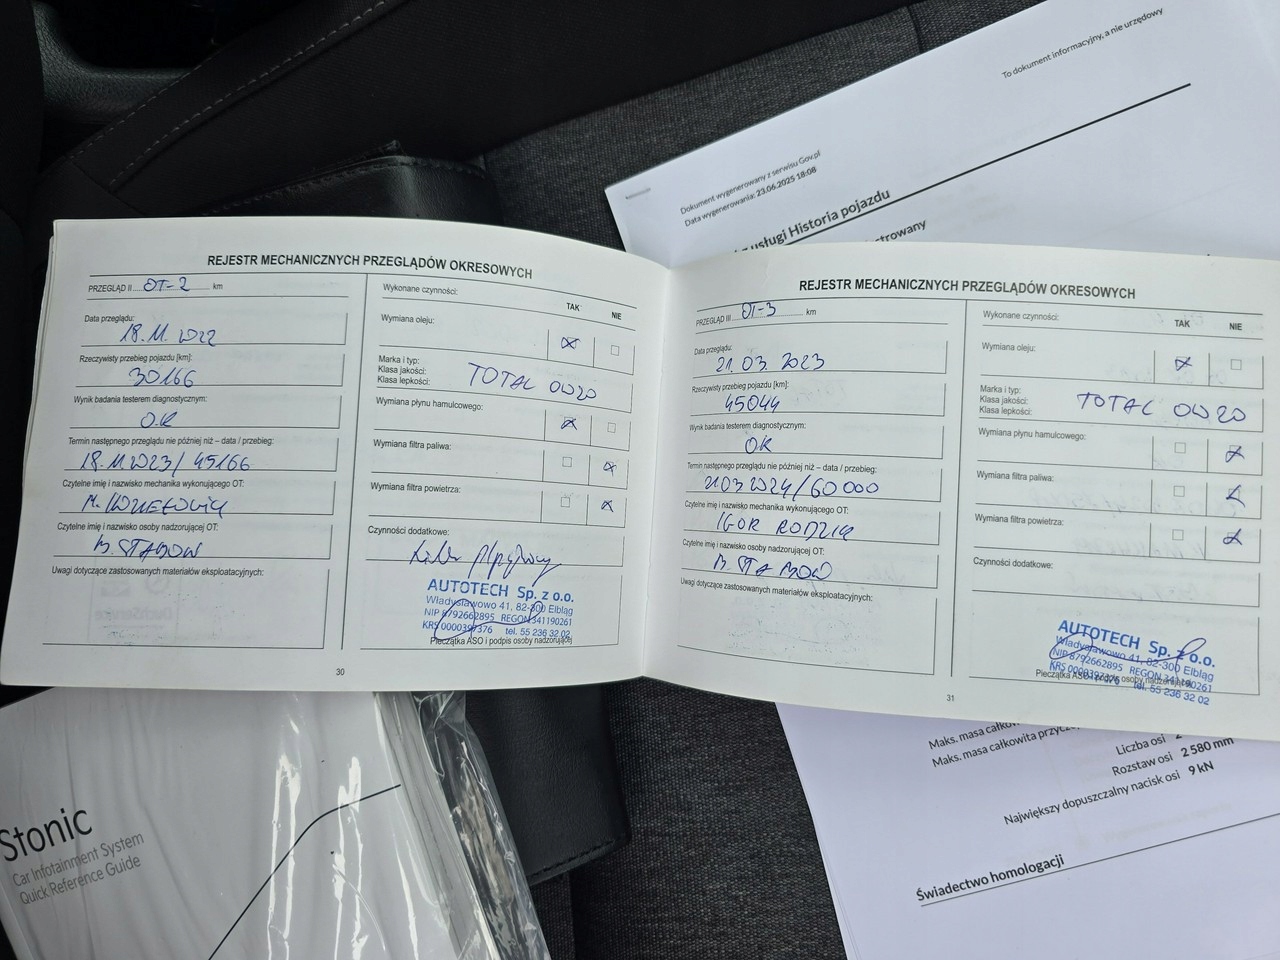 To dokument informacyjny, a nie urzędowy
Dokument wygenerowany z serwisu Gov.pl
Data wygenerowania: 23.06.2025 18:08
usługi Historia pojazdu
REJESTR MECHANICZNYCH PRZEGLĄDÓW OKRESOWYCH
PRZEGLĄD II OT-2 km
Data przeglądu:
18.11.2022
Rzeczywisty przebieg pojazdu [km]:
30166
Wynik badania testerem diagnostycznym:
OK
Termin następnego przeglądu nie później niż – data / przebieg:
18.11.2023/45166
Czytelne imię i nazwisko mechanika wykonującego OT:
Czytelne imię i nazwisko osoby nadzorującej OT:
Uwagi dotyczące zastosowanych materiałów eksploatacyjnych:
Wykonane czynności:
TAK NIE
Wymiana oleju:
Marka i typ:
Klasa jakości:
Klasa lepkości:
TOTAL 0W20
Wymiana płynu hamulcowego:
Wymiana filtra paliwa:
Wymiana filtra powietrza:
Czynności dodatkowe:
AUTOTECH Sp. z o.o.
Władysławowo 41, 82-300 Elbląg
NIP 8792662895 REGON 341190261
KRS 0000397376 tel. 55 236 32 02
Pieczątka ASO i podpis osoby nadzorującej
30
REJESTR MECHANICZNYCH PRZEGLĄDÓW OKRESOWYCH
PRZEGLĄD III OT-3 km
Data przeglądu:
21.03.2023
Rzeczywisty przebieg pojazdu [km]:
45044
Wynik badania testerem diagnostycznym:
OK
Termin następnego przeglądu nie później niż – data / przebieg:
21032024/60000
Czytelne imię i nazwisko mechanika wykonującego OT:
IGOR
Czytelne imię i nazwisko osoby nadzorującej OT:
Uwagi dotyczące zastosowanych materiałów eksploatacyjnych:
Wykonane czynności:
TAK NIE
Wymiana oleju:
Marka i typ:
Klasa jakości:
Klasa lepkości:
TOTAL 0W20
Wymiana płynu hamulcowego:
Wymiana filtra paliwa:
Wymiana filtra powietrza:
Czynności dodatkowe:
AUTOTECH Sp. z o.o.
Władysławowo 41, 82-300 Elbląg
NIP 8792662895 REGON 341190261
KRS 0000397376 tel. 55 236 32 02
Pieczątka ASO i podpis osoby nadzorującej
31
Stonic
Car Infotainment System
Quick Reference Guide
Maks. masa
Maks. masa całkowita
Liczba osi
Rozstaw osi 2 580 mm
Największy dopuszczalny nacisk osi 9 kN
Świadectwo homologacji